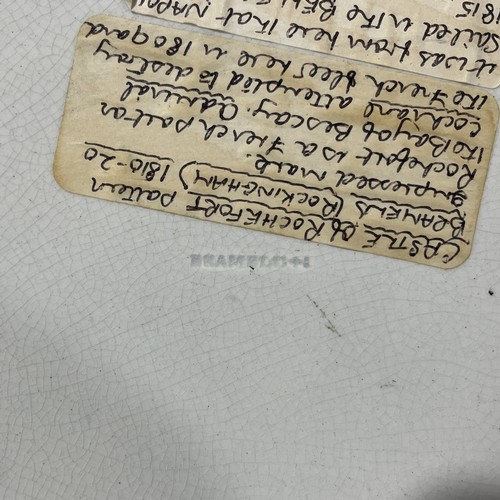 CASTLE of ROCHEFORT pattern
BRAMELD (ROCKINGHAM) 1810-20
Impressed mark.
Rochefort is a French port on
the Bay of Bescay. Admiral
Cochrane attempted to destroy
the French fleet here in 1809 and
it was from here that NAPO
sailed in the BELL
1815
BRAMELD+1